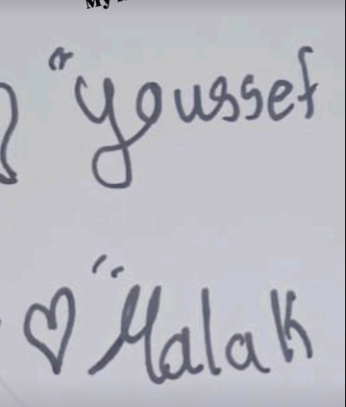 My
"Youssef
♡ "Malak